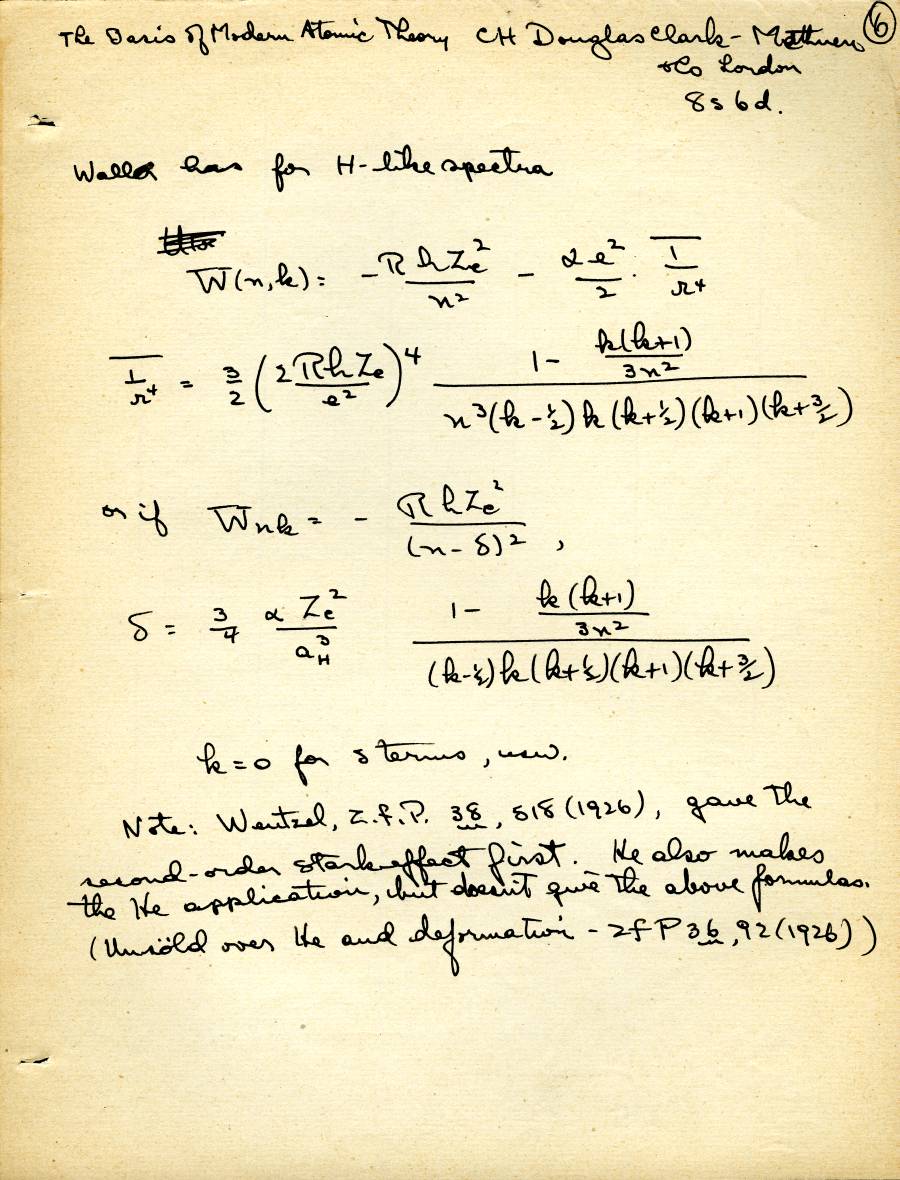 The Basis of Modern Atomic Theory CH Douglas Clark - Methuen 6
& Co London
8s 6d.
Waller has for H-like spectra
W(n,k) = - RhZe²/n² - αe²/2 · \overline{1/r⁴}
\overline{1/r⁴} = 3/2 (2RhZe/e²)⁴ (1 - k(k+1)/3n²)/(n³(k-½)k(k+½)(k+1)(k+3/2))
or if Wnk = - RhZe²/(n-δ)²,
δ = 3/4 αZe²/a_H³ (1 - k(k+1)/3n²)/((k-½)k(k+½)(k+1)(k+3/2))
k=0 for s terms, usw.
Note: Wentzel, Z.f.P. 38, 518 (1926), gave the
second-order stark effect first. He also makes
the He application, but doesn't give the above formulas.
(Unsöld over He and deformation - ZfP 36, 92 (1926))